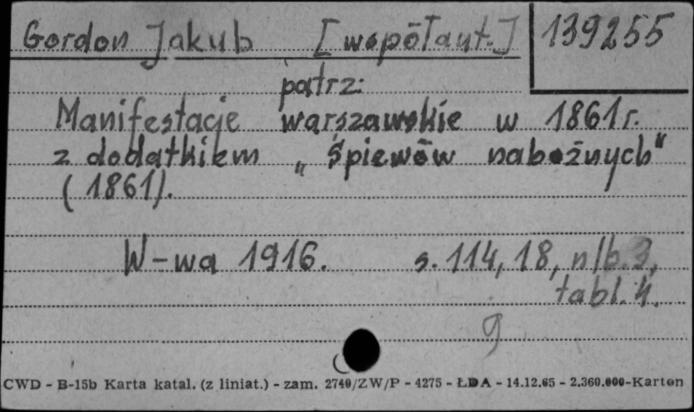 Gordon Jakub [wspōłaut.] 139255
patrz:
Manifestacje warszawskie w 1861 r.
z dodatkiem „Śpiewōw nabożnych"
(1861).
W-wa 1916. s. 114, 18, nlb. 3,
tabl. 4.
9
CWD - B-15b Karta katal. (z liniat.) - zam. 2740/ZW/P - 4275 - ŁDA - 14.12.65 - 2.360.000-Karton